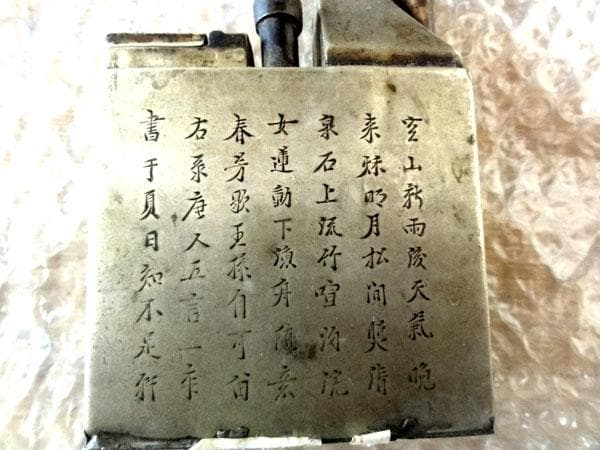 空山新雨後天氣晚
来秋明月松间照清
泉石上流竹喧归浣
女蓮動下漁舟随意
春芳歇王孫自可留
右录唐人五言一章
書于夏日知不足軒